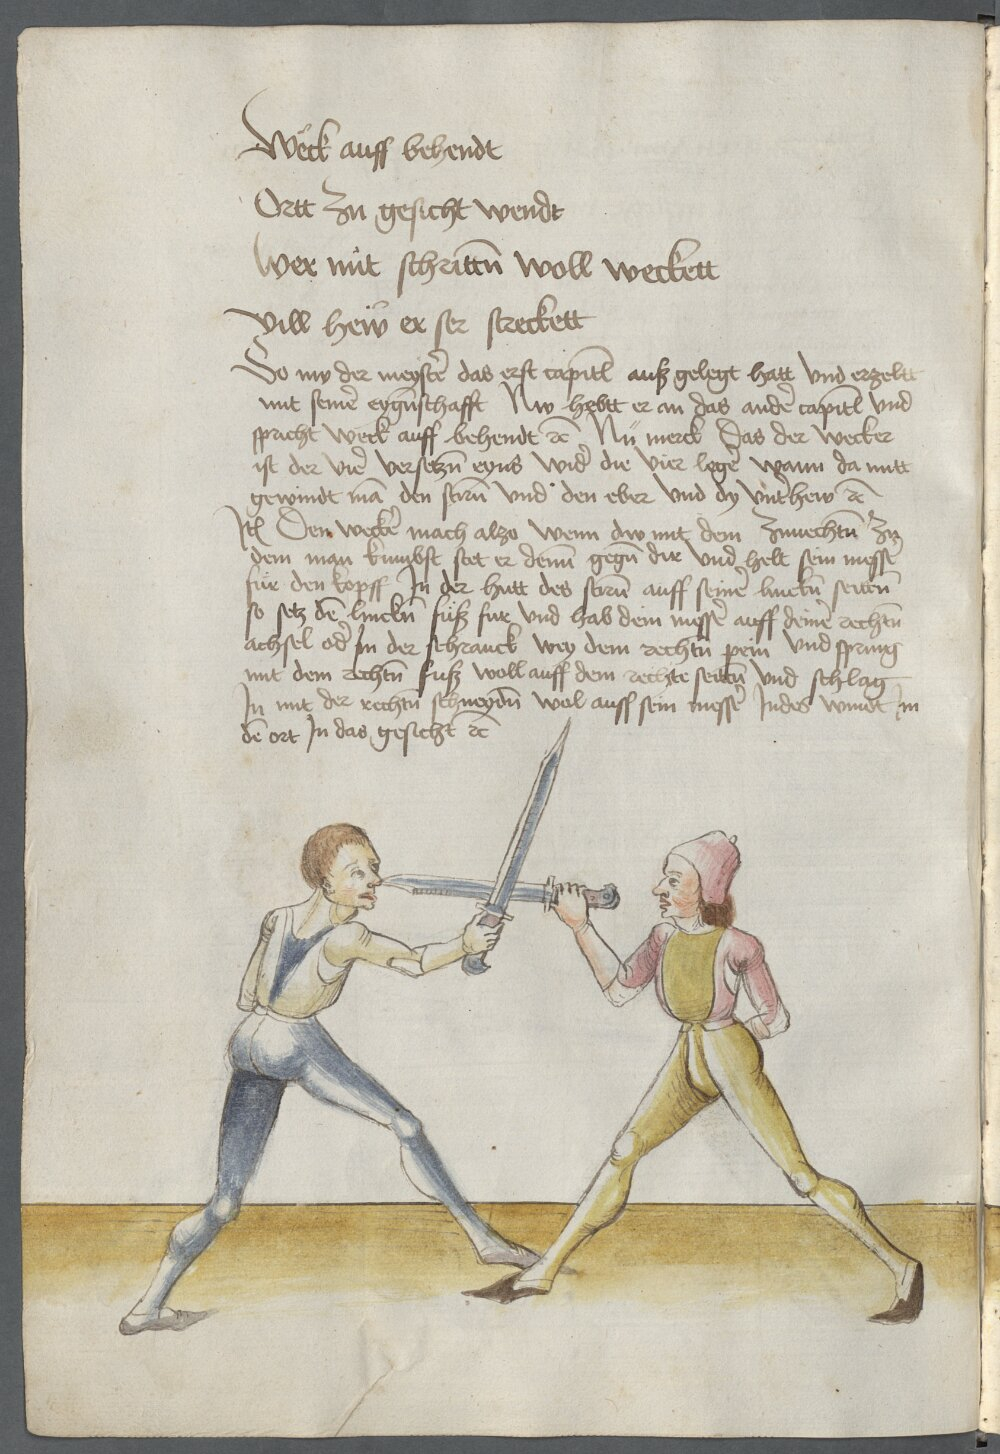 Weck auff behendt
Ortt zu gesicht wendt
Wer mit schrittñ woll weckett
vill hew er ser streckett
So nw der meystr̄ das erst capitl̄ ausz gelegt hatt vnd erzeltt
mit seinē eygñschafft Nw hebtt er an das andr̄ capitl̄ vnd
spricht Weck auff behendt ꝛc Nü merck Das der wecker
ist der vier versetzñ eyns wid̄ die vier leger̄ wann da mitt
gewindt mā den stirñ vnd den eber vnd dy vnterhew ꝛc
Itē Den wecker̄ mach alzo wenn dw mit dem zuuechtñ zu
dem man kumbst stet er denn gegñ dir vnd helt sein messer̄
für den kopff In der hutt des stirñ auff seiner̄ linckñ seittñ
so setz dē linckñ füsz fur vnd hab dein messer̄ auff deiner̄ rechtñ
achsel od̄ In der schranck wey dem rechtñ pein vnd spring
mit dem rechtñ fusz woll auff dem rechte seittñ vnd schlag
In mit der rechtñ schneydñ wol auff sein messer̄ Indes windt im
dē ort In das gesicht ꝛc